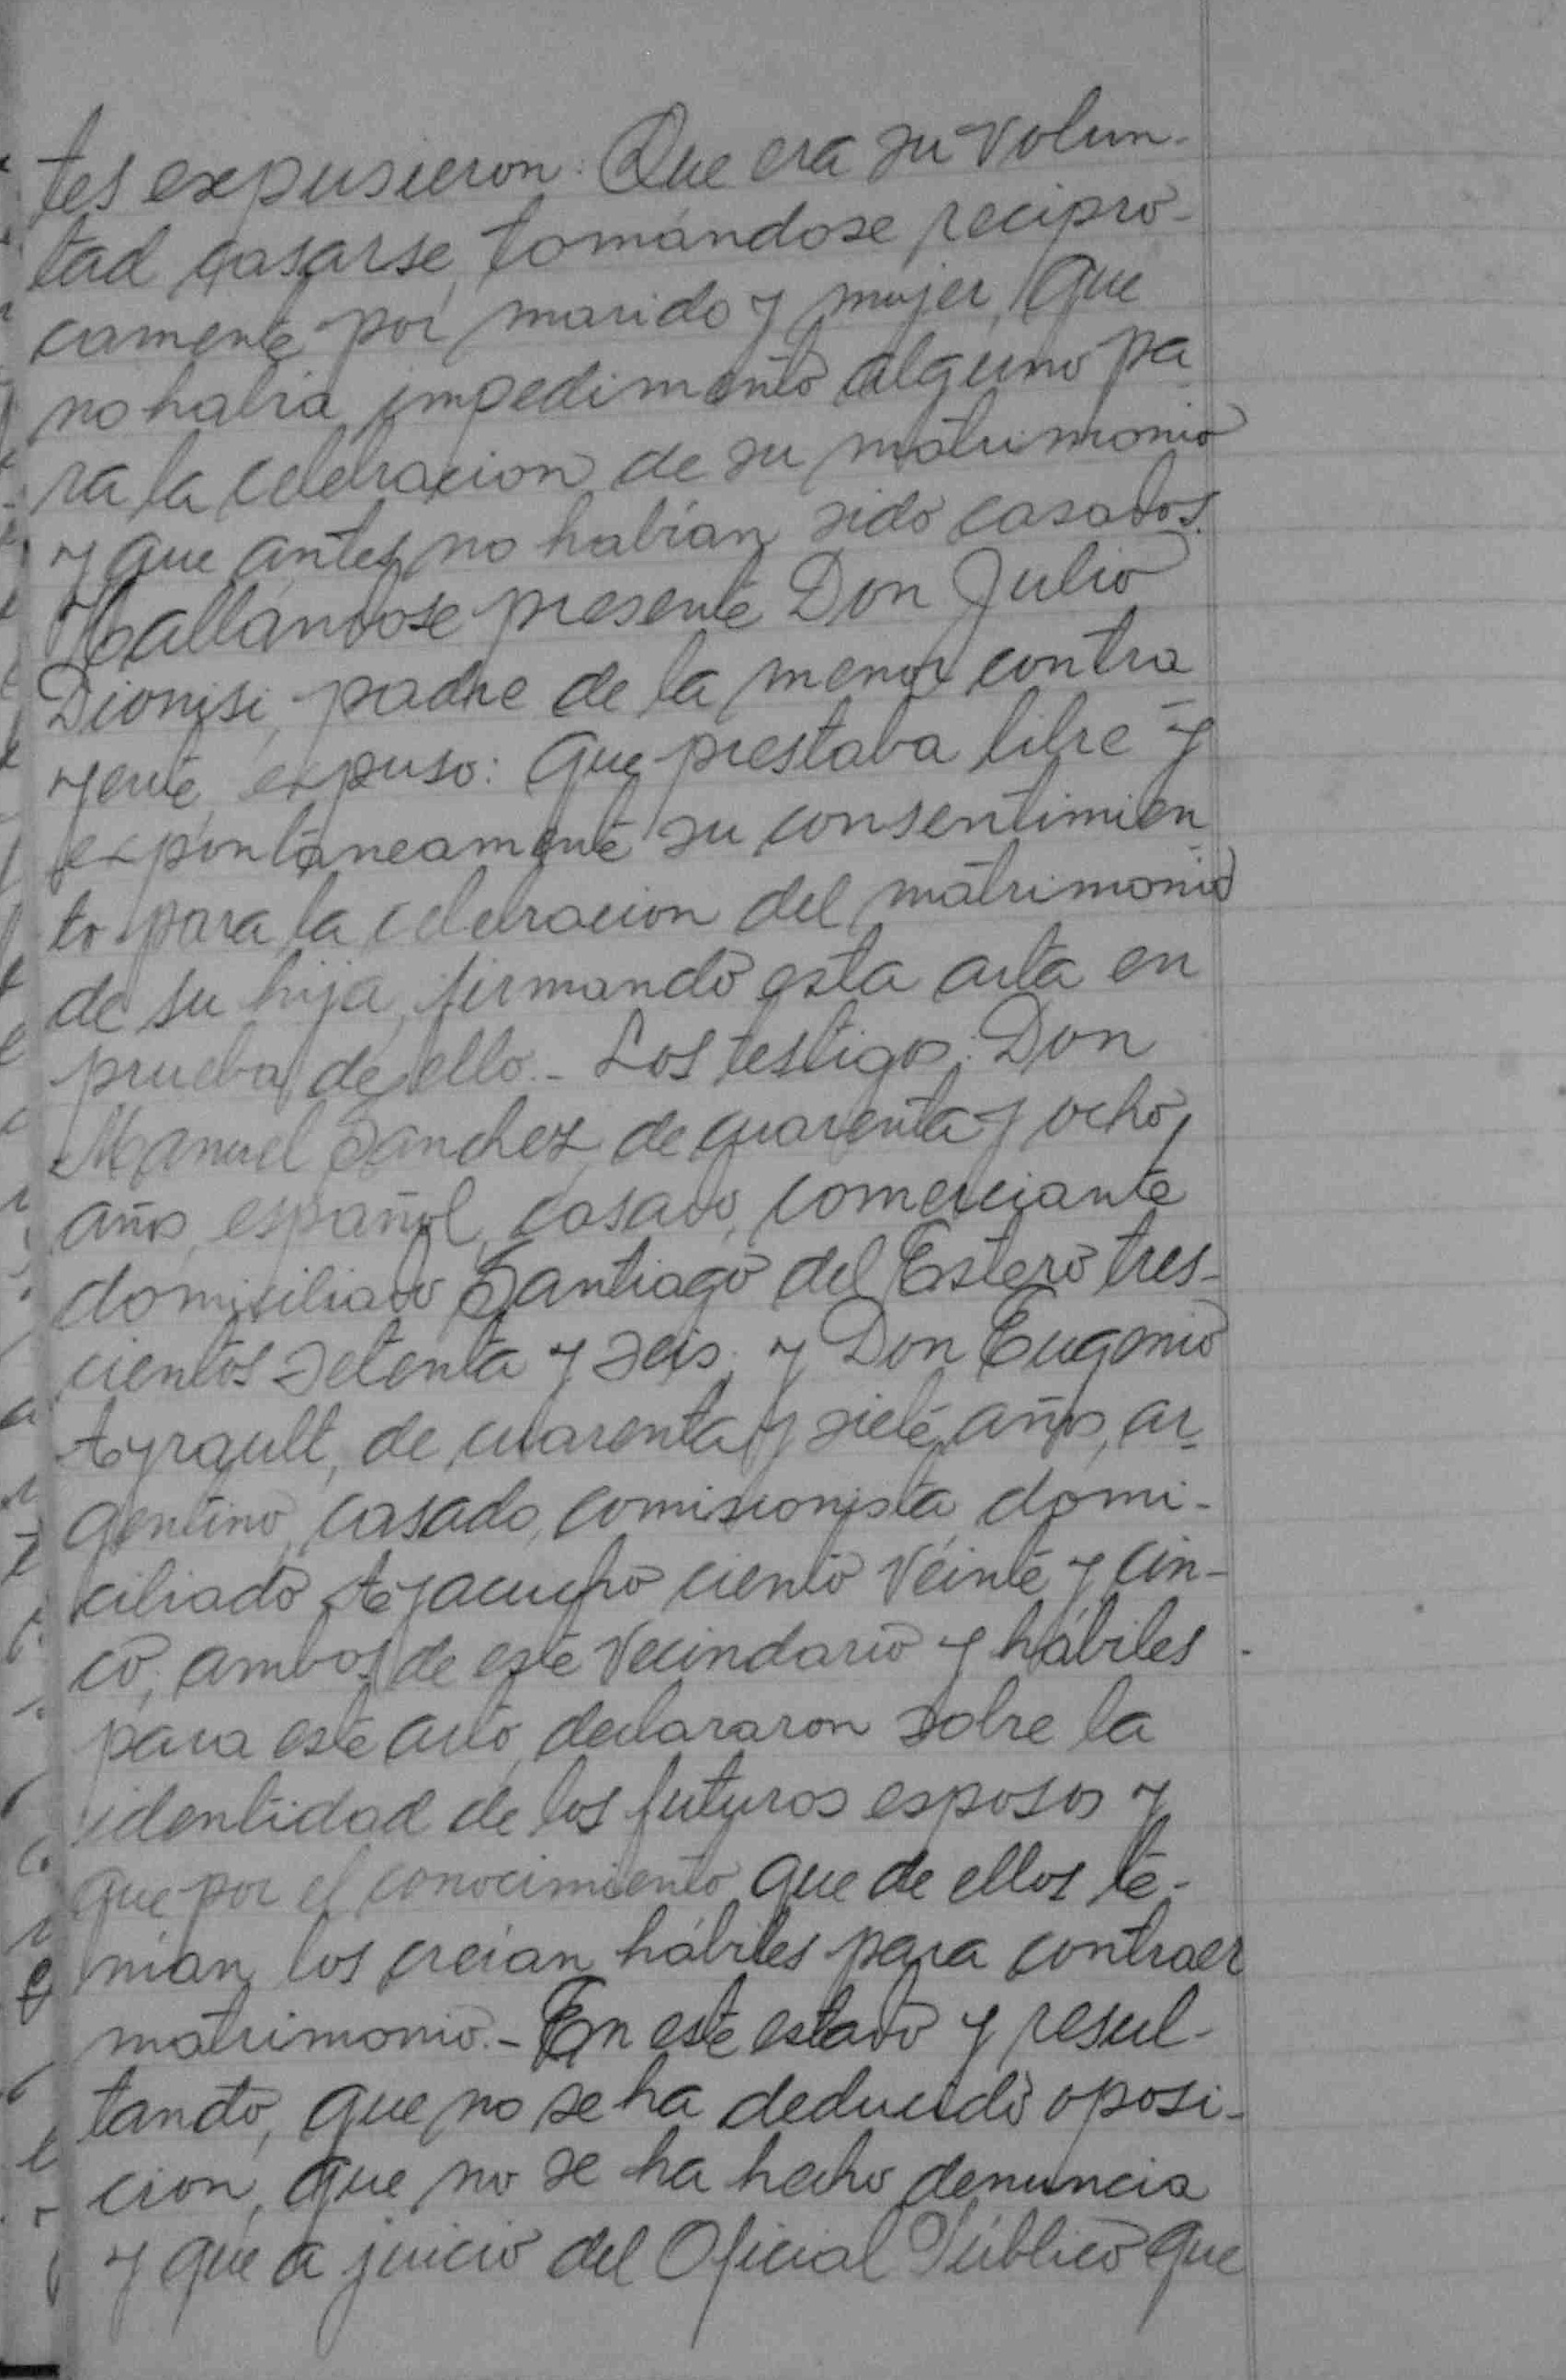 tes expusieron: Que era su volun-
tad casarse, tomándose recipro-
camente por marido y mujer, que
no habia impedimento alguno pa
ra la celebracion de su matrimonio
y que antes no habían sido casados.
Hallándose presente Don Julio
Dionisi, padre de la menor contra
yente, expuso: que prestaba libre y
expontáneamente su consentimien
to para la celebracion del matrimonio
de su hija, firmando esta acta en
prueba de ello.- Los testigos: Don
Manuel Sanchez, de cuarenta y ocho
años, español, casado, comerciante
domiciliado Santiago del Estero tres-
cientos setenta y seis, y Don Eugenio
Ayrault, de cuarenta y siete años, ar-
gentino, casado, comisionista, domi-
ciliado Ayacucho ciento veinte y cin-
co, ambos de este vecindario y hábiles
para este acto, declararon sobre la
identidad de los futuros esposos y
que por el conocimiento que de ellos te-
nian, los creían hábiles para contraer
matrimonio.- En este estado y resul-
tando, que no se ha deducido oposi-
cion, que no se ha hecho denuncia
y que a juicio del Oficial Público que